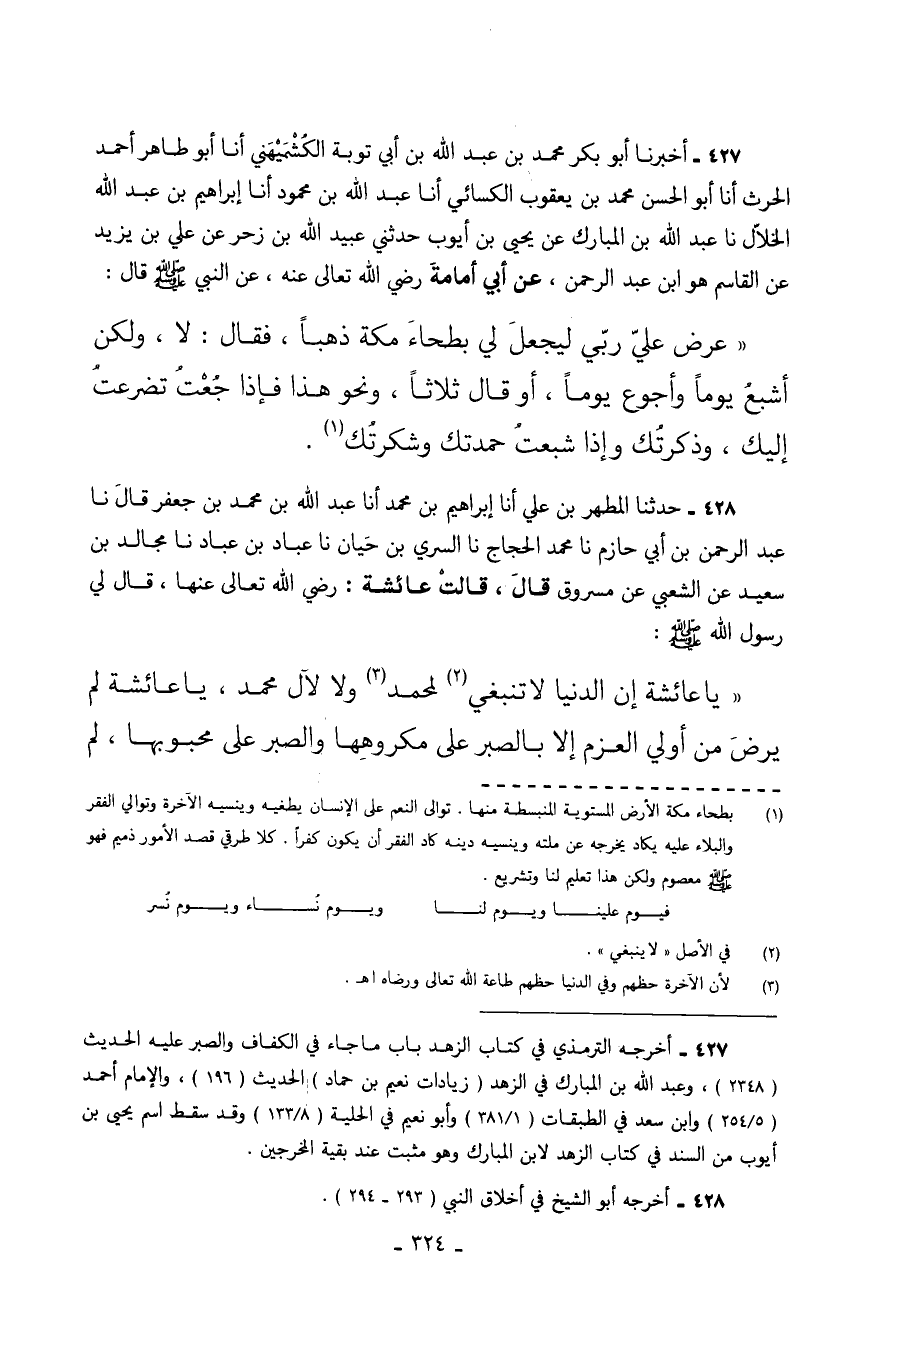 ٤٢٧ ـ أخبرنا أبو بكر محمد بن عبد الله بن أبي توبة الكُشْمَيْهَني أنا أبو طاهر أحمد
الحرث أنا أبو الحسن محمد بن يعقوب الكسائي أنا عبد الله بن محمود أنا إبراهيم بن عبد الله
الخلاّل نا عبد الله بن المبارك عن يحيى بن أيوب حدثني عبيد الله بن زحر عن علي بن يزيد
عن القاسم هو ابن عبد الرحمن ، عن أبي أمامةَ رضي الله تعالى عنه ، عن النبي ﷺ قال :
« عرض عليّ ربّي ليجعلَ لي بطحاءَ مكة ذهباً ، فقال : لا ، ولكن
أشبعُ يوماً وأجوع يوماً ، أو قال ثلاثاً ، ونحو هذا فإذا جُعْتُ تضرعتُ
إليك ، وذكرتُك وإذا شبعتُ حمدتك وشكرتُك(١) .
٤٢٨ ـ حدثنا المطهر بن علي أنا إبراهيم بن محمد أنا عبد الله بن محمد بن جعفر قالَ نا
عبد الرحمن بن أبي حازم نا محمد الحجاج نا السري بن حَيان نا عباد بن عباد نا مجالد بن
سعيد عن الشعبي عن مسروق قالَ ، قالتْ عائشة : رضي الله تعالى عنها ، قال لي
رسول الله ﷺ :
« يا عائشة إن الدنيا لا تنبغي(٢) لمحمد(٣) ولا لآل محمد ، يا عائشة لم
يرضَ من أولي العزم إلا بالصبر على مكروهِها والصبر على محبوبها ، لم
(١) بطحاء مكة الأرض المستوية المنبسطة منها . توالى النعم على الإنسان يطغيه وينسيه الآخرة وتوالي الفقر
والبلاء عليه يكاد يخرجه عن ملته وينسيه دينه كاد الفقر أن يكون كفراً . كلا طرقي قصد الأمور ذميم فهو
ﷺ معصوم ولكن هذا تعليم لنا وتشريع .
فيوم علينا ويوم لنا ويوم نُساء ويوم نُسر
(٢) في الأصل « لا ينبغي » .
(٣) لأن الآخرة حظهم وفي الدنيا حظهم طاعة الله تعالى ورضاه اهـ .
٤٢٧ ـ أخرجه الترمذي في كتاب الزهد باب ماجاء في الكفاف والصبر عليه الحديث
( ٢٣٤٨ ) ، وعبد الله بن المبارك في الزهد ( زيادات نعيم بن حماد ) الحديث ( ١٩٦ ) ، والإمام أحمد
( ٢٥٤/٥ ) وابن سعد في الطبقات ( ٣٨١/١ ) وأبو نعيم في الحلية ( ١٣٣/٨ ) وقد سقط اسم يحيى بن
أيوب من السند في كتاب الزهد لابن المبارك وهو مثبت عند بقية المخرجين .
٤٢٨ ـ أخرجه أبو الشيخ في أخلاق النبي ( ٢٩٣ ـ ٢٩٤ ) .
ـ ٣٢٤ ـ